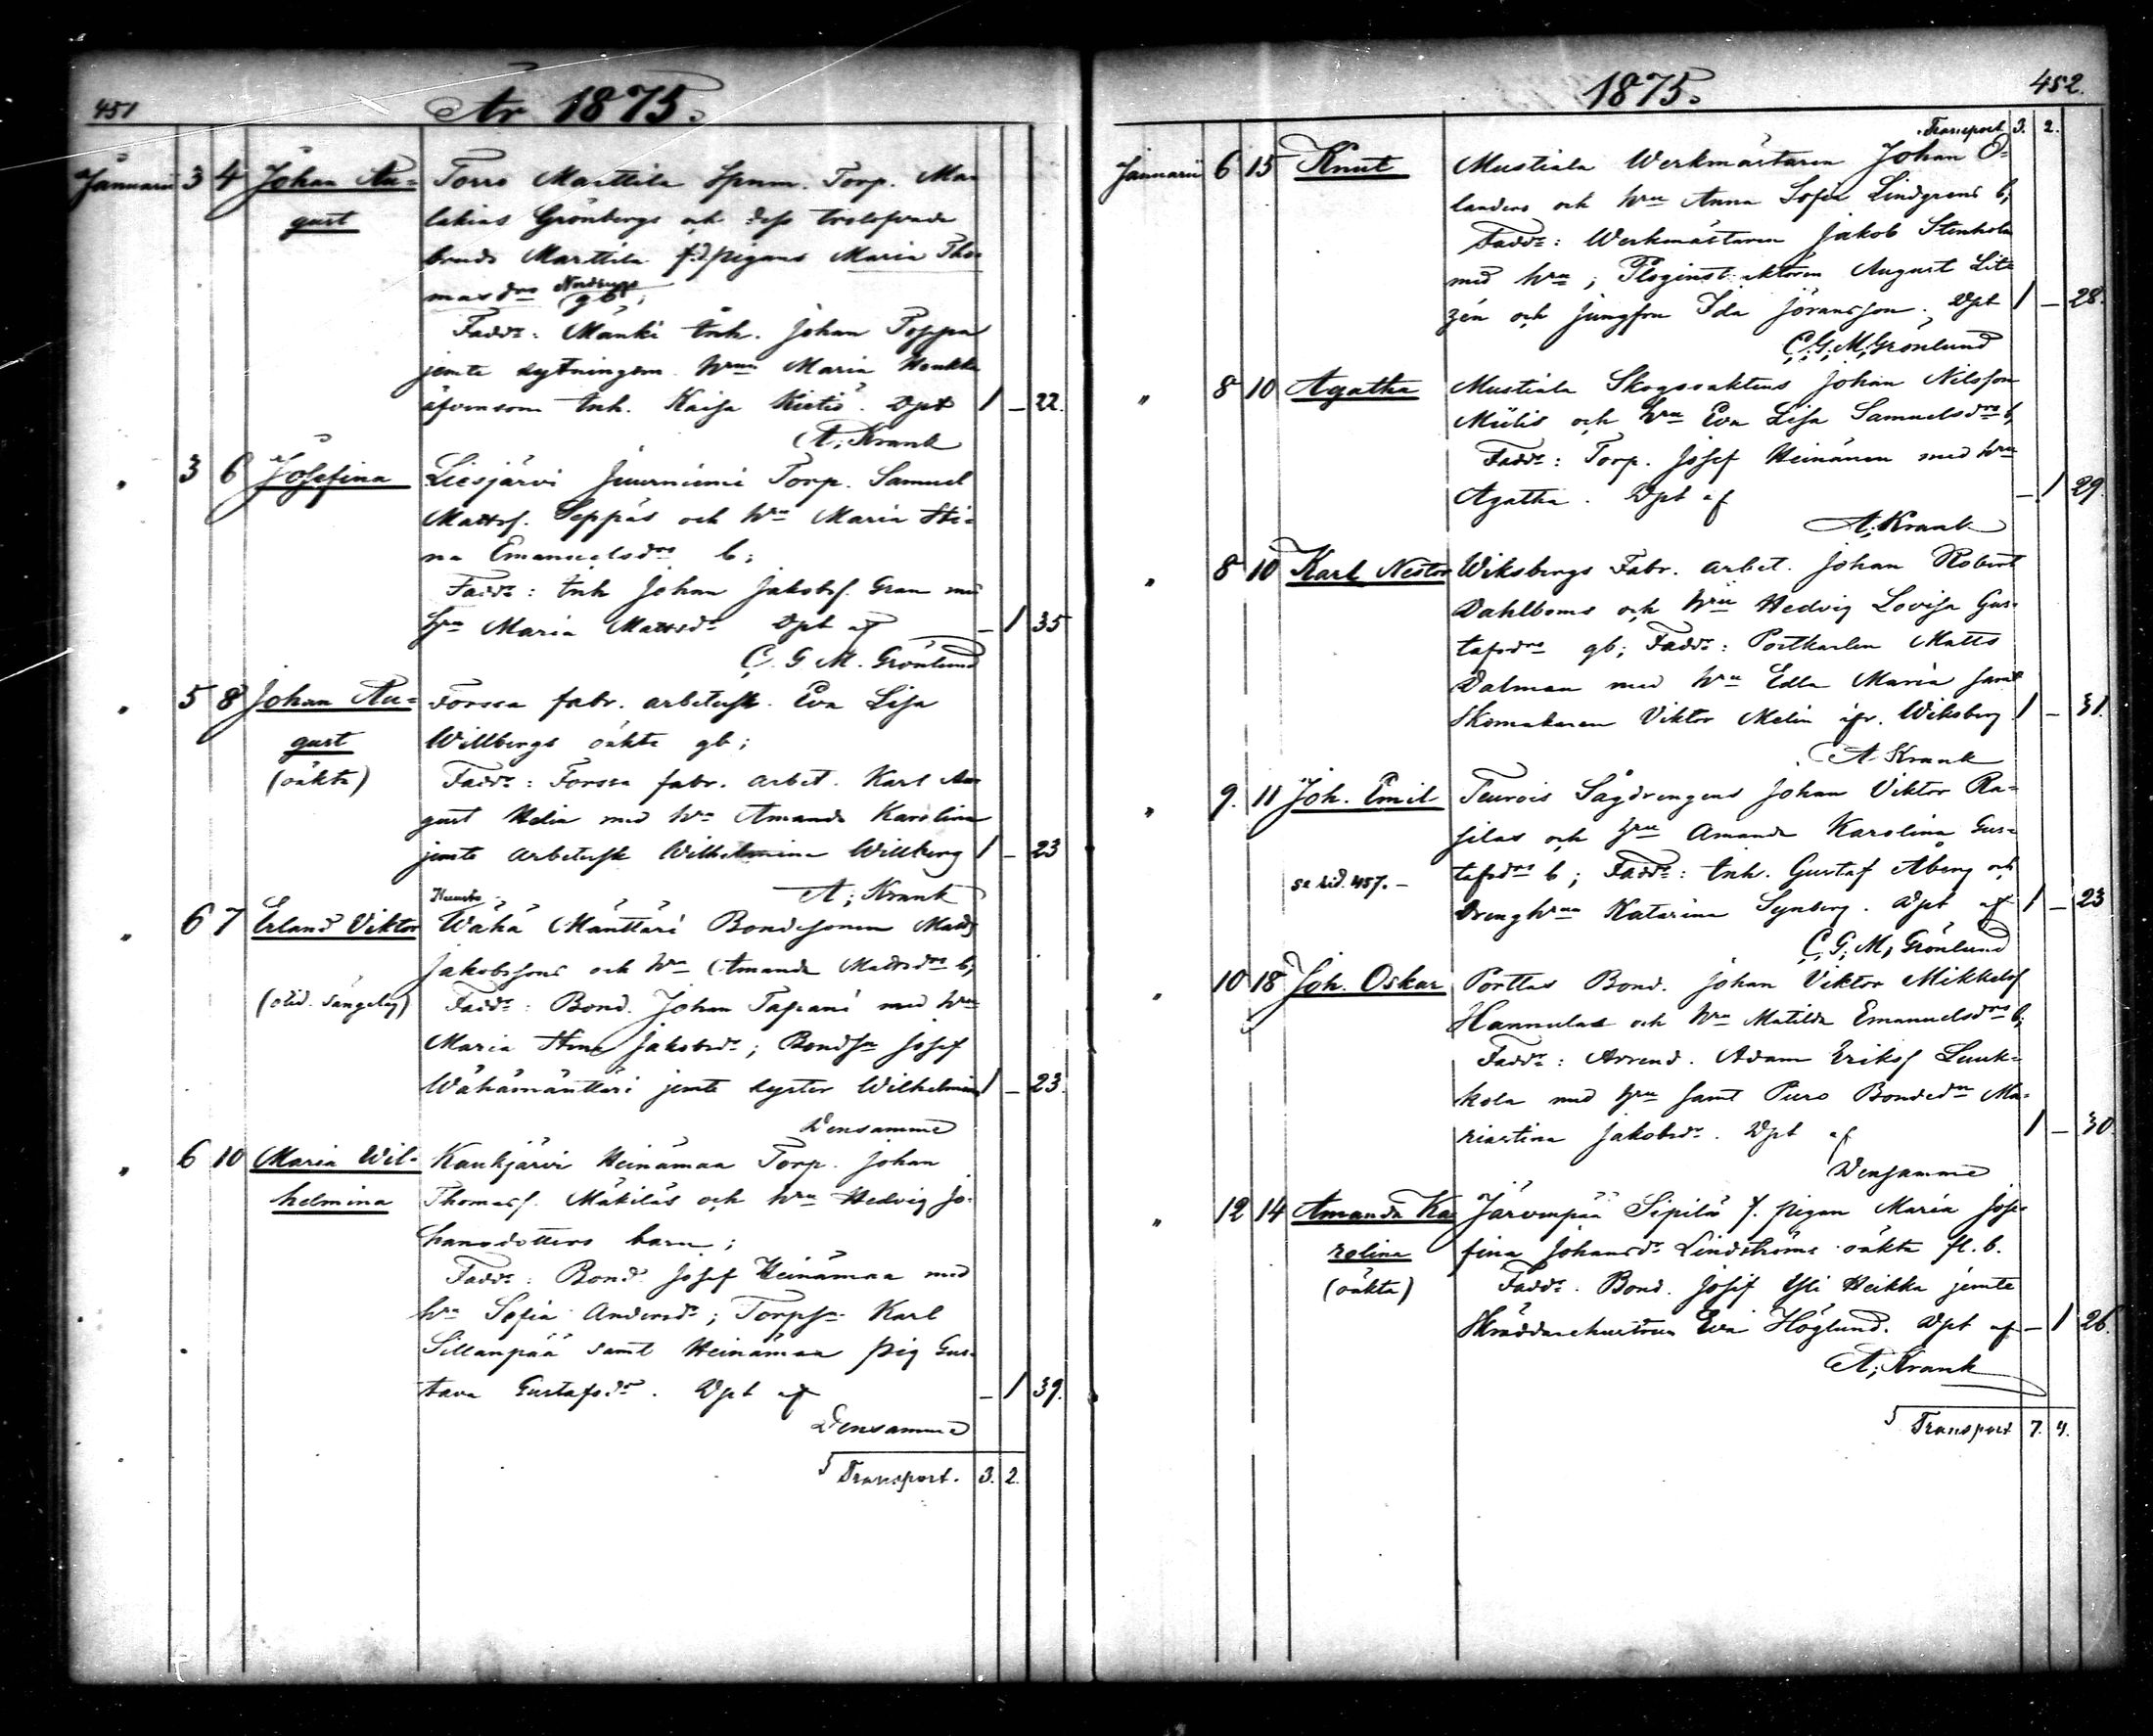 451
År 1875.
Januarii 3 4 Johan Au= Torro Marttila Spnm. Torp. Ma-
gust lakias Grönbergs och dess trolofvade
bruds Marttila f.d. pigans Maria Tho-
mas drs gb;
Fadd: Mänki Inh. Johan Poppa
jemte sytningsm. hru Maria Honkka
äfvensom Inh. Kaisa Kietis. Dpt 1 – 22.
A; Krank
" 3 6 Josefina Liesjärvi Juurniemi Torp. Samuel
Mattsf. Seppäs och hru Maria Sti-
na Emanuelsdrs b;
Fadd: Inh Johan Jakobsf. Gran med
hru Maria Mattsdr Dpt af – 1 35
C. G M. Grönlund
" 5 8 Johan Au= Forssa fabr. arbetersk. Eva Lisa
gust Willbergs oäkta gb;
(oäkta) Fadd: Forssa fabr. arbet. Karl Au-
gust Helin med hru Amanda Karolina
jemte arbetersk Wilhelmina Willberg 1 – 23
A; Krank
" 6 7 Erland Viktor Wähä Mänttäri Bondesonen Matts
Jakobssons och hru Amanda Mattsdrs b;
(otid. sängelag) Fadd: Bond. Johan Tapani med hru
Maria Stina Jakobsdr; Bondsn Josef
Wähämänttäri jemte syster Wilhelmina 1 – 23.
Densamme
" 6 10 Maria Wil- Kaukjärvi Heinämaa Torp. Johan
helmina Thomasf. Mäkiläs och hru Hedvig Jo-
hansdotters barn;
Fadd: Bond Josef Heinämaa med
hru Sofia Andersdr; Torpsn Karl
Sillanpää samt Heinämaa pig Gus-
tava Gustafsdr. Dpt af – 1 39.
Densamme
Transport. 3. 2.
1875.
452.
Transport 3. 2.
Januarii 6 15 Knut Mustiala Werkmästaren Johan O-
landers och hru Anna Sofia Lindgrens b;
Fadd: Werkmästaren Jakob Stenholm
med hru; August Lit-
zén och jungfru Ida Joransson. Dpt 1 – 28.
C; G; M; Grönlund
" 8 10 Agatha Mustiala Skogsvaktens Johan Nilsson
Miilis och hru Eva Lisa Samuelsdrs b,
Fadd: Torp. Josef Heinänen med hru
Agatha. Dpt af – 1 29.
A; Krank
" 8 10 Karl Nestor Wiksbergs Fabr. arbet. Johan Robert
Dahlboms och hru Hedvig Lovisa Gus-
tafsdrs gb; Fadd: Postkarlen Matts
Dalman med hru Edla Maria samt
Skomakaren Viktor Melin ifr. Wiksberg 1 – 31.
A Krank
" 9. 11 Joh. Emil Teurois Sågdrengens Johan Viktor Ra-
silas och hru Amanda Karolina Gus-
se sid. 457. – tafsdrs b; Fadd: Inh. Gustaf Åberg och
Drenghru Katarina Synberg. Dpt af 1 – 23
C; G; M; Grönlund
" 10 18 Joh. Oskar Porttas Bond. Johan Viktor Mikkelsf
Hannulas och hru Matilda Emanuelsdrs b;
Fadd: Arrend. Adam Eriksf Luuk-
kola med hru samt Puro Bondedr Ma-
riastina Jakobsdr. Dpt af 1 – 30.
Densamme
" 12 14 Amanda Ka- Järvenpää Sipilä f. pigan Maria Jose-
rolina fina Johansdr Lindströms oäkta fl. b.
(oäkta) Fadd. Bond. Josef Yli Heikka jemte
Skräddarehustrun Eva Höglund. Dpt af – 1 26.
A; Krank
Transport 7. 4.